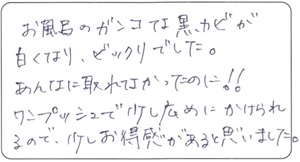 お風呂のガンコな黒カビが
白くなり、ビックリでした。
あんなに取れなかったのに!!
ワンプッシュで少し広めにかけられ
るので、少しお得感があると思いました。